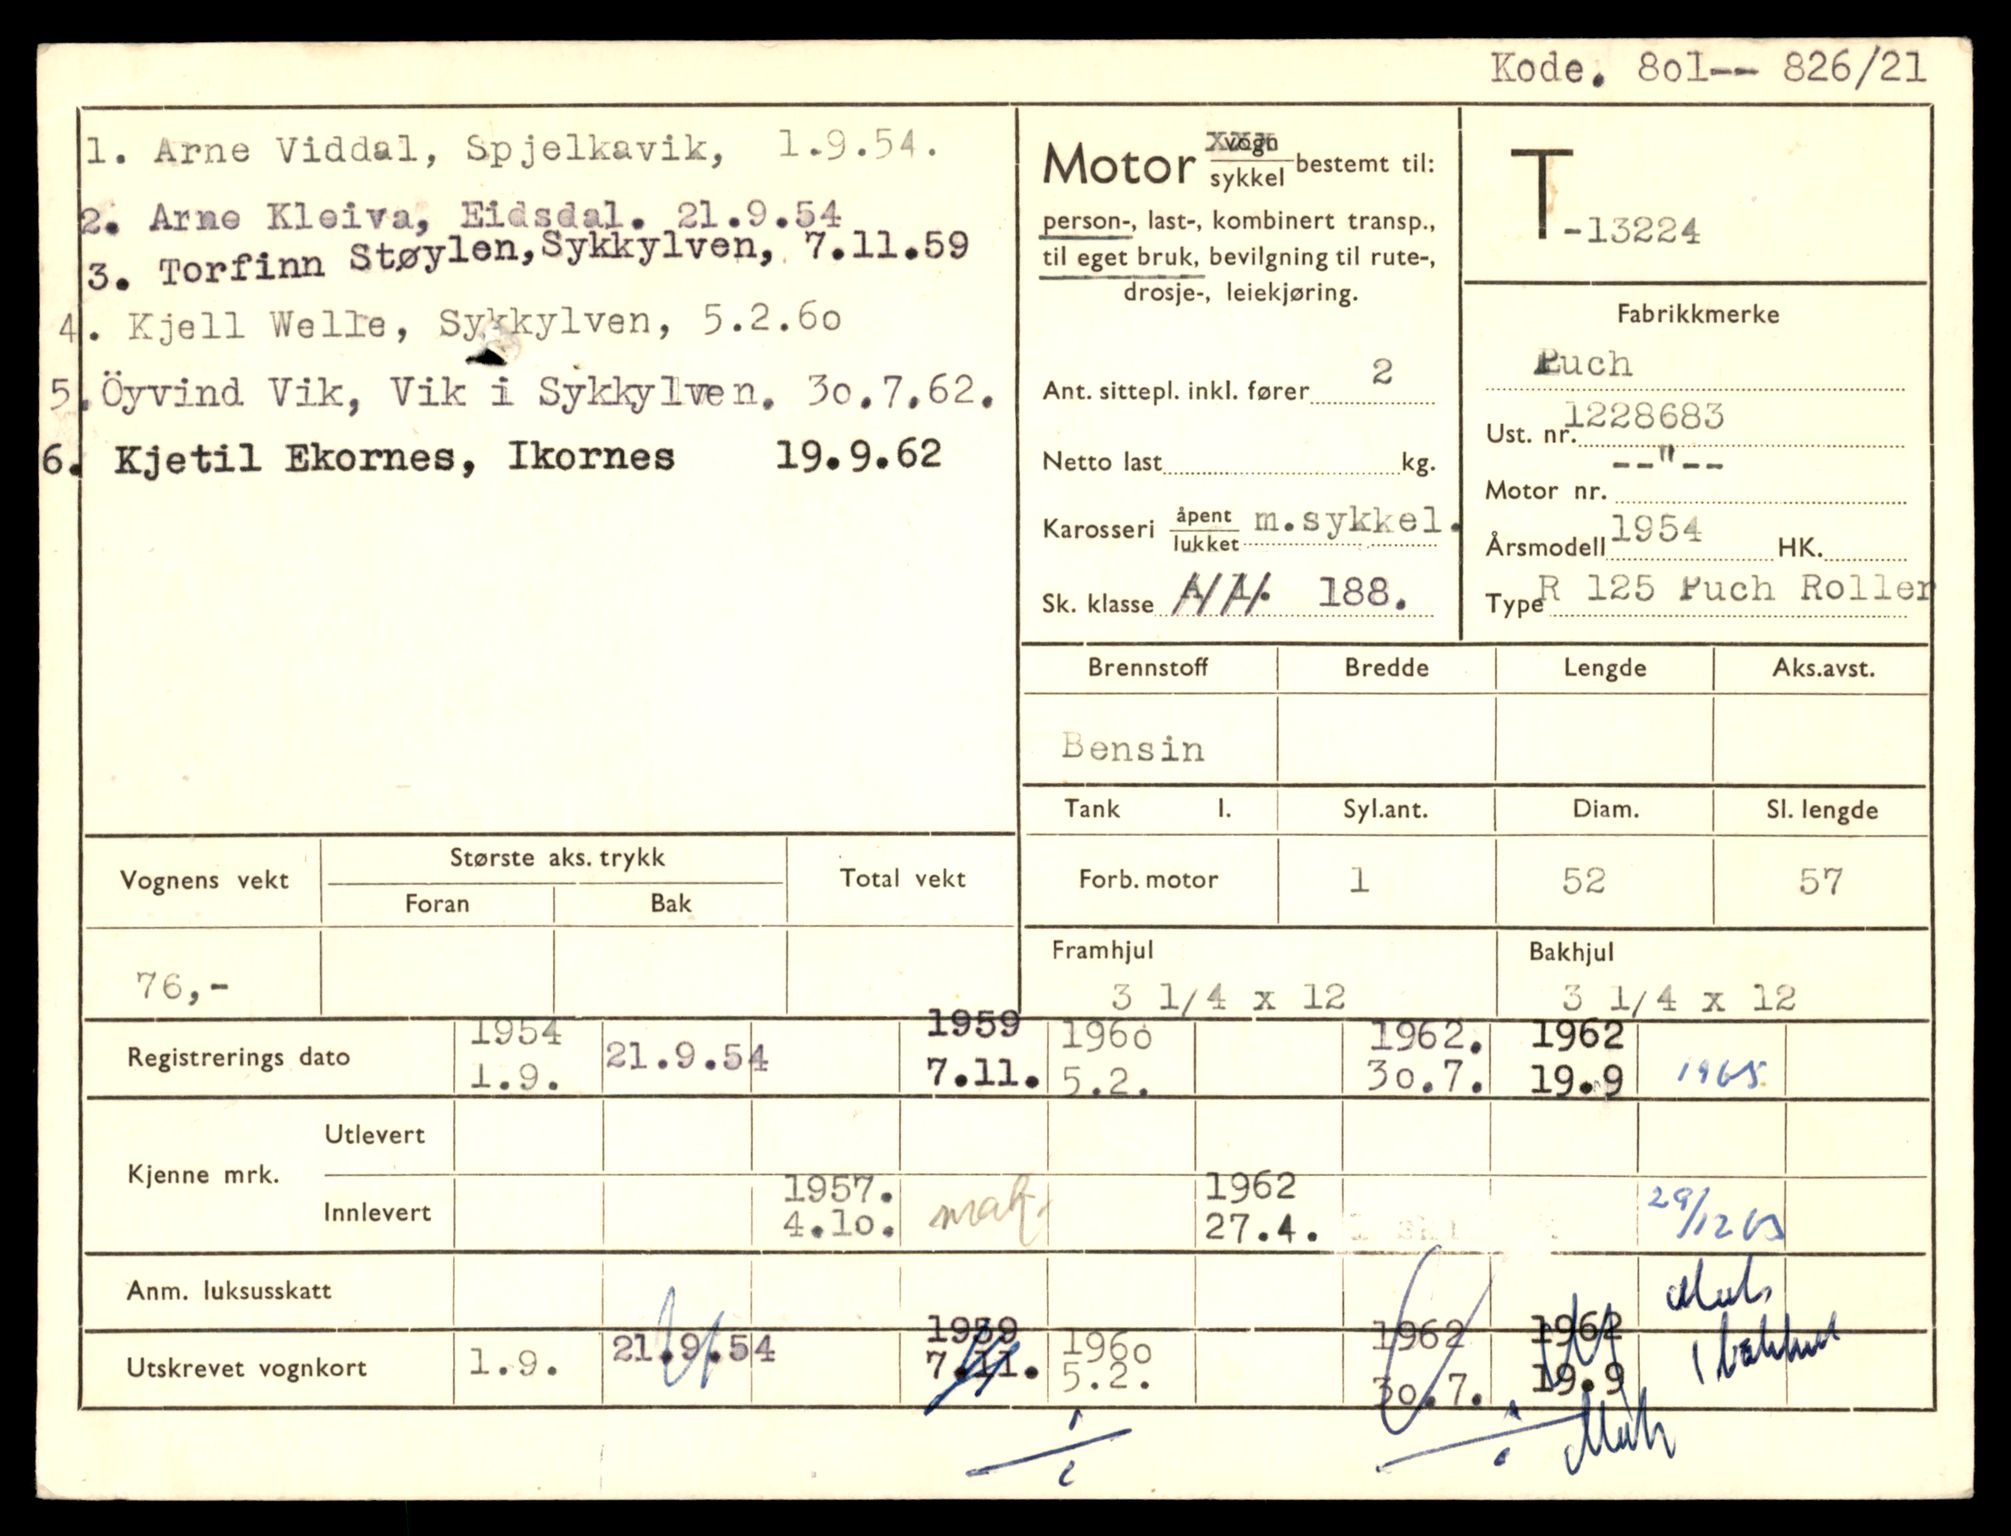 Kode. 8ol-- 826/21
1. Arne Viddal, Spjelkavik, 1.9.54.
2. Arne Kleiva, Eidsdal. 21.9.54
3. Torfinn Støylen, Sykkylven, 7.11.59
4. Kjell Welle, Sykkylven, 5.2.6o
5. Öyvind Vik, Vik i Sykkylven. 3o.7.62.
6. Kjetil Ekornes, Ikornes 19.9.62
Motor vogn sykkel bestemt til:
person-, last-, kombinert transp.,
til eget bruk, bevilgning til rute-,
drosje-, leiekjøring.
Ant. sittepl. inkl. fører 2
Netto last kg.
Karosseri åpent lukket m.sykkel.
Sk. klasse A/1. 188.
T-13224
Fabrikkmerke
Puch
Ust. nr. 1228683
Motor nr. --"--
Årsmodell 1954 HK.
Type R 125 Puch Roller
Brennstoff Bredde Lengde Aks.avst.
Bensin
Tank l. Syl.ant. Diam. Sl. lengde
Forb. motor 1 52 57
Framhjul Bakhjul
3 1/4 x 12 3 1/4 x 12
Vognens vekt Største aks. trykk Total vekt
Foran Bak
76,-
1954 1959 196o 1962. 1962
Registrerings dato 1.9. 21.9.54 7.11. 5.2. 3o.7. 19.9 1965
Kjenne mrk.
Utlevert
1957. 1962
Innlevert 4.1o. 27.4. 29/12 65
Anm. luksusskatt
1959 196o 1962 1962
Utskrevet vognkort 1.9. 21.9.54 7.11. 5.2. 3o.7. 19.9